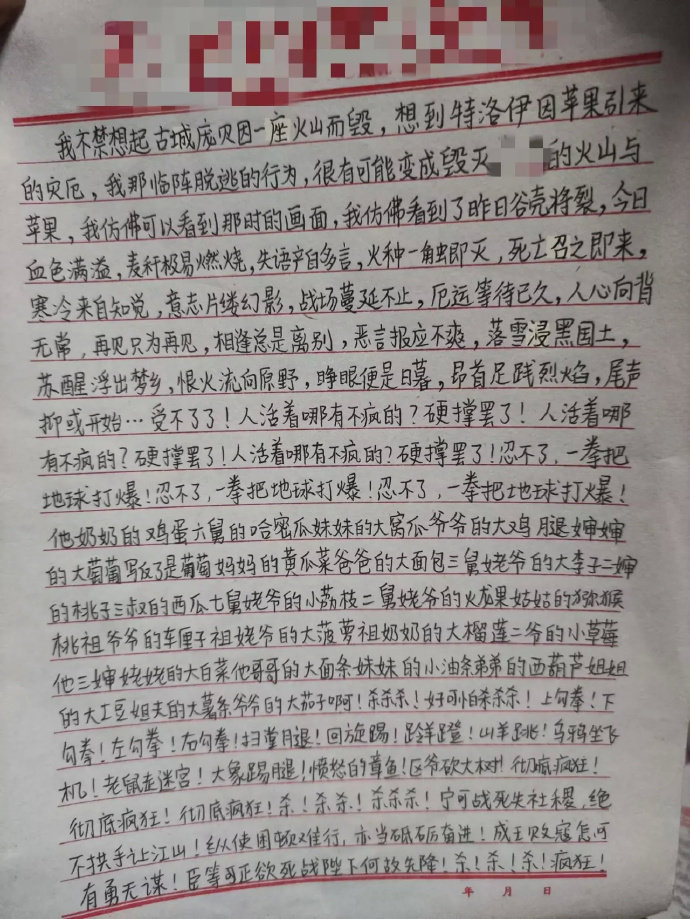 我不禁想起古城庞贝因一座火山而毁，想到特洛伊因苹果引来
的灾厄，我那临阵脱逃的行为，很有可能变成毁灭 的火山与
苹果，我仿佛可以看到那时的画面，我仿佛看到了昨日谷壳将裂，今日
血色满溢，麦秆极易燃烧，失语辛自多言，火种一触即灭，死亡召之即来，
寒冷来自知说，意志片缕幻影，战场蔓延不止，厄运等待已久，人心向背
无常，再见只为再见，相逢总是离别，恶言报应不爽，落雪浸黑国土，
苏醒浮出梦乡，恨火流向原野，睁眼便是日暮，昂首足践烈焰，尾声
抑或开始…受不了了！人活着哪有不疯的？硬撑罢了！人活着哪
有不疯的？硬撑罢了！人活着哪有不疯的？硬撑罢了！忍不了，一拳把
地球打爆！忍不了，一拳把地球打爆！忍不了，一拳把地球打爆！
他奶奶的鸡蛋六舅的哈密瓜妹妹的大窝瓜爷爷的大鸡腿婶婶
的大葡萄写反了是葡萄妈妈的黄瓜菜爸爸的大面包三舅姥爷的大李子二婶
的桃子三叔的西瓜七舅姥爷的小荔枝二舅姥爷的火龙果姑姑的猕猴
桃祖爷爷的车厘子祖姥爷的大菠萝祖奶奶的大榴莲二爷的小草莓
他三婶姥姥的大白菜他哥哥的大面条妹妹的小油条弟弟的西葫芦姐姐
的大江豆姐夫的大薯条爷爷的大茄子啊！杀杀杀！好可怕杀杀杀！上勾拳！下
勾拳！左勾拳！右勾拳！扫堂腿！回旋踢！蹬！山羊跳！乌鸦坐飞
机！老鼠走迷宫！大象踢腿！愤怒的章鱼！区爷砍大树！彻底疯狂！
彻底疯狂！彻底疯狂！杀！杀杀！杀杀杀！宁可战死失社稷，绝
不拱手让江山！纵使困顿难行，亦当砥砺奋进！成王败寇怎可
有勇无谋！臣等正欲死战陛下何故先降！杀！杀！杀！疯狂！
年 月 日